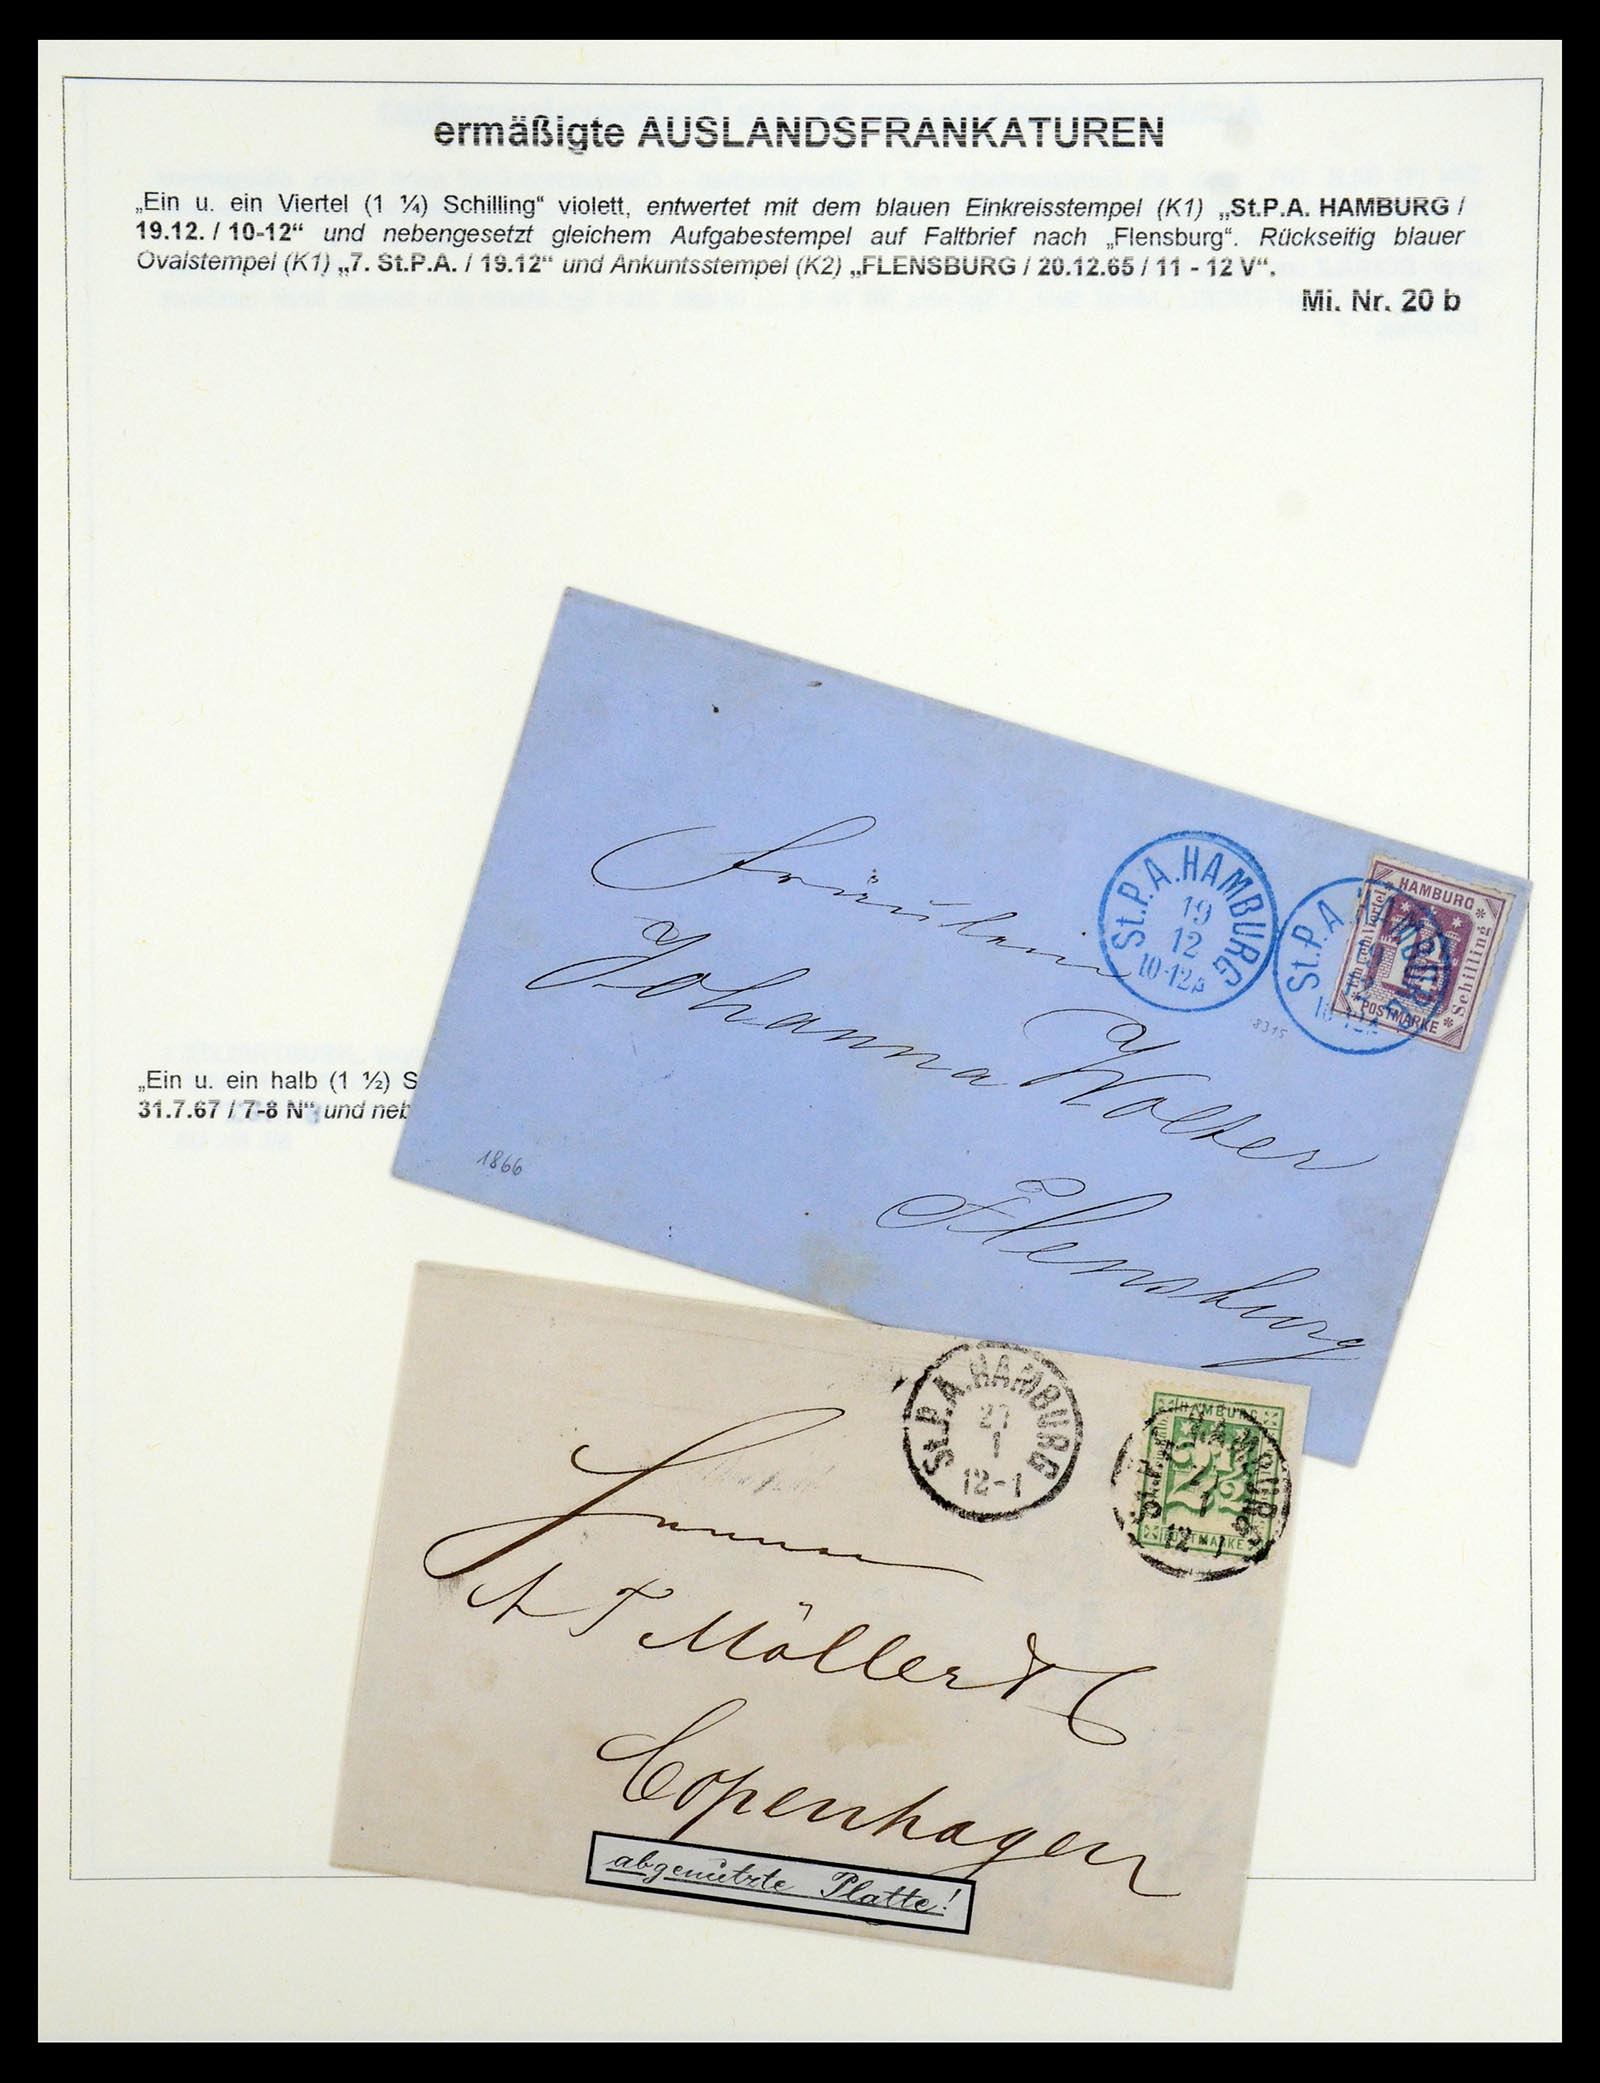 ermäßigte AUSLANDSFRANKATUREN
„Ein u. ein Viertel (1 ¼) Schilling“ violett, entwertet mit dem blauen Einkreisstempel (K1) „St.P.A. HAMBURG /
19.12. / 10-12“ und nebengesetzt gleichem Aufgabestempel auf Faltbrief nach „Flensburg“. Rückseitig blauer
Ovalstempel (K1) „7. St.P.A. / 19.12“ und Ankuntsstempel (K2) „FLENSBURG / 20.12.65 / 11 - 12 V“.
Mi. Nr. 20 b
St.P.A. HAMBURG
19
12
10-12
HAMBURG
Schilling
POSTMARKE
St.P.A. HAMBURG
8315
Fräulein
Johanna Wolter
Flensburg
1866
„Ein u. ein halb (1 ½) S
31.7.67 / 7-8 N“ und neb
St.P.A. HAMBURG
27
1
12-1
HAMBURG
2½
POSTMARKE
12-1
A T Möller & C
Copenhagen
abgenützte Platte!